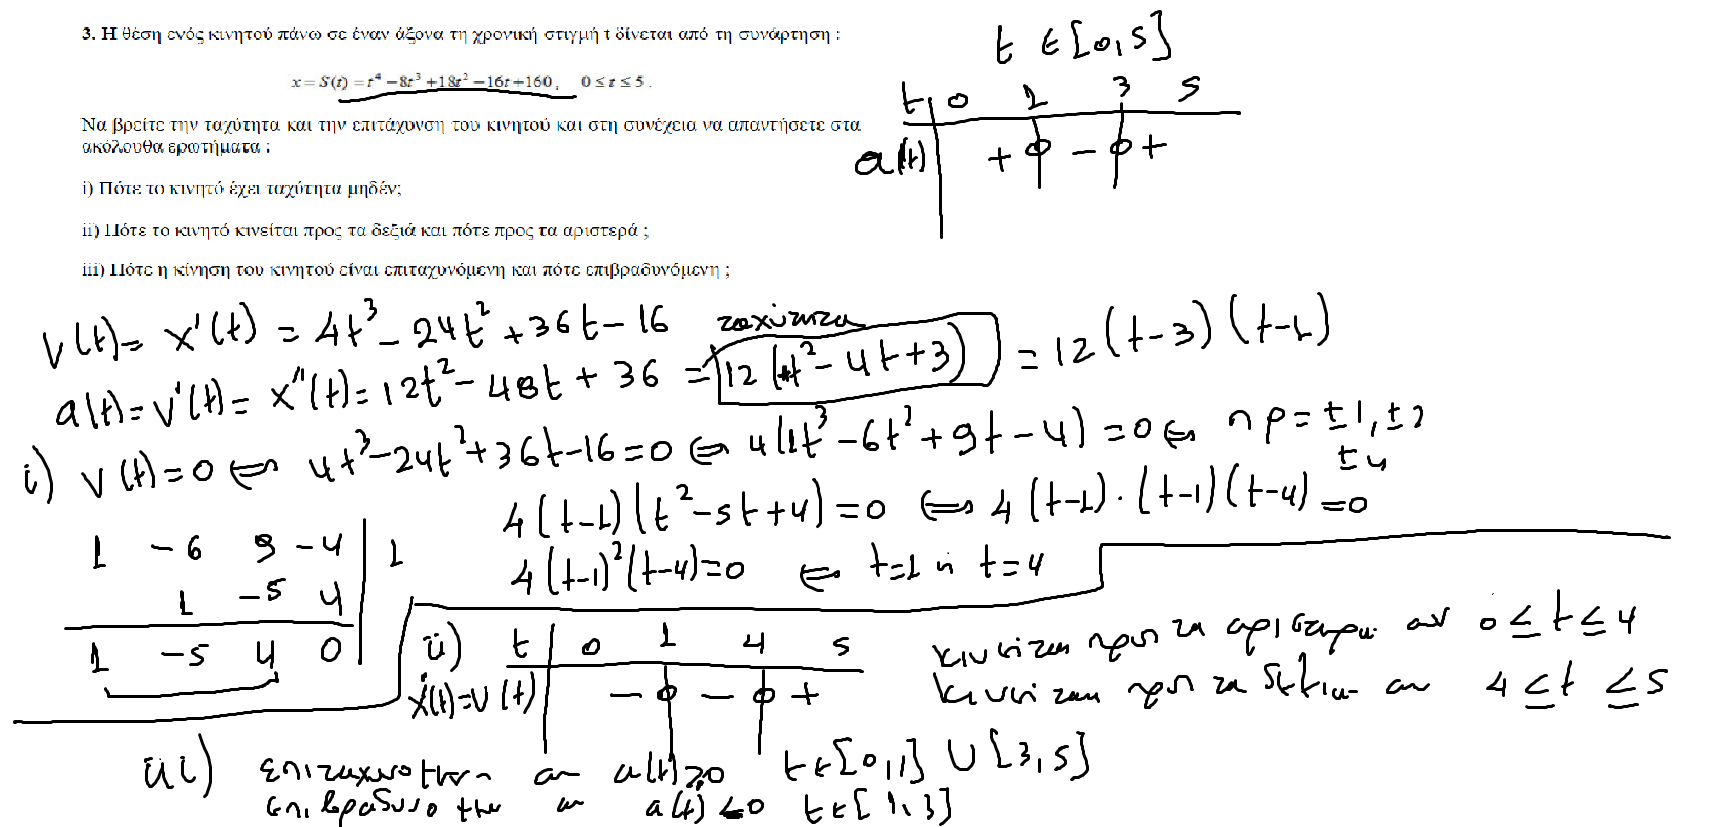 3. Η θέση ενός κινητού πάνω σε έναν άξονα τη χρονική στιγμή t δίνεται από τη συνάρτηση :
x = S(t) = t⁴ − 8t³ + 18t² − 16t + 160, 0 ≤ t ≤ 5 .
Να βρείτε την ταχύτητα και την επιτάχυνση του κινητού και στη συνέχεια να απαντήσετε στα
ακόλουθα ερωτήματα :
i) Πότε το κινητό έχει ταχύτητα μηδέν;
ii) Πότε το κινητό κινείται προς τα δεξιά και πότε προς τα αριστερά ;
iii) Πότε η κίνηση του κινητού είναι επιταχυνόμενη και πότε επιβραδυνόμενη ;
t ∈ [0,5]
t 0 1 3 5
a(t) + 0 − 0 +
v(t) = x'(t) = 4t³ − 24t² + 36t − 16 ταχύτητα
a(t) = v'(t) = x''(t) = 12t² − 48t + 36 = 12(t² − 4t + 3) = 12(t−3)(t−1)
i) v(t) = 0 ⇔ 4t³ − 24t² + 36t − 16 = 0 ⇔ 4(1t³ − 6t² + 9t − 4) = 0 ⇔ πρ = ±1, ±2
±4
4(t−1)(t² − 5t + 4) = 0 ⇔ 4(t−1)·(t−1)(t−4) = 0
4(t−1)²(t−4) = 0 ⇔ t=1 ή t=4
1 −6 9 −4 | 1
1 −5 4
1 −5 4 0
ii) t 0 1 4 5
x'(t) = v(t) − 0 − 0 +
κινείται προς τα αριστερά αν 0 ≤ t ≤ 4
κινείται προς τα δεξιά αν 4 ≤ t ≤ 5
iii) αν a(t) ≥ 0 t ∈ [0,1] ∪ [3,5]
αν a(t) ≤ 0 t ∈ [1,3]